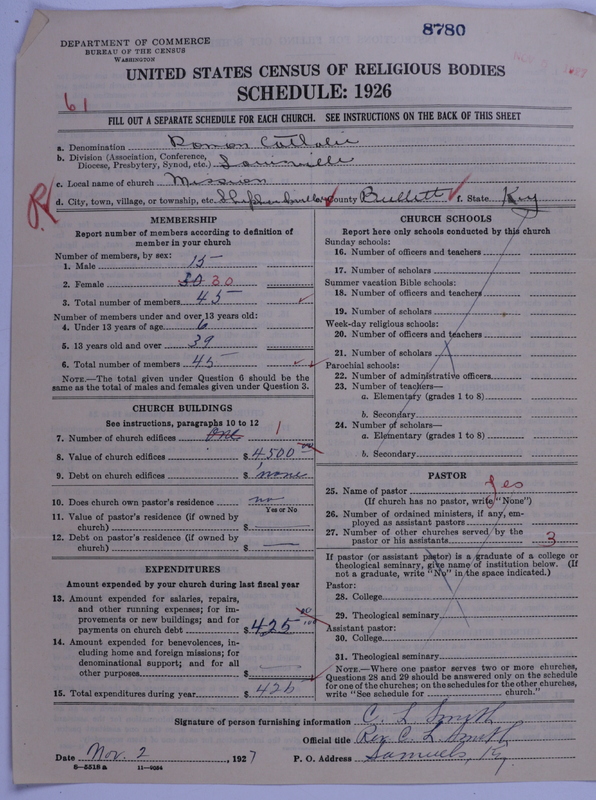 8780
DEPARTMENT OF COMMERCE
BUREAU OF THE CENSUS
WASHINGTON
UNITED STATES CENSUS OF RELIGIOUS BODIES
SCHEDULE: 1926
61
FILL OUT A SEPARATE SCHEDULE FOR EACH CHURCH. SEE INSTRUCTIONS ON THE BACK OF THIS SHEET
a. Denomination Roman Catholic
b. Division (Association, Conference, Diocese, Presbytery, Synod, etc.) Louisville
c. Local name of church Mission
d. City, town, village, or township, etc. County Bullitt f. State Ky
MEMBERSHIP
Report number of members according to definition of
member in your church
Number of members, by sex:
1. Male 15
2. Female 30 30
3. Total number of members 45
Number of members under and over 13 years old:
4. Under 13 years of age 6
5. 13 years old and over 39
6. Total number of members 45
NOTE.—The total given under Question 6 should be the
same as the total of males and females given under Question 3.
CHURCH BUILDINGS
See instructions, paragraphs 10 to 12
7. Number of church edifices One 1
8. Value of church edifices $4500 00
9. Debt on church edifices $ none
10. Does church own pastor's residence no
Yes or No
11. Value of pastor's residence (if owned by
church) $
12. Debt on pastor's residence (if owned by
church) $
EXPENDITURES
Amount expended by your church during last fiscal year
13. Amount expended for salaries, repairs,
and other running expenses; for im-
provements or new buildings; and for
payments on church debt $425
14. Amount expended for benevolences, in-
cluding home and foreign missions; for
denominational support; and for all
other purposes $
15. Total expenditures during year $425
CHURCH SCHOOLS
Report here only schools conducted by this church
Sunday schools:
16. Number of officers and teachers
17. Number of scholars
Summer vacation Bible schools:
18. Number of officers and teachers
19. Number of scholars
Week-day religious schools:
20. Number of officers and teachers
21. Number of scholars
Parochial schools:
22. Number of administrative officers
23. Number of teachers—
a. Elementary (grades 1 to 8)
b. Secondary
24. Number of scholars—
a. Elementary (grades 1 to 8)
b. Secondary
PASTOR
25. Name of pastor Yes
(If church has no pastor, write "None")
26. Number of ordained ministers, if any, em-
ployed as assistant pastors
27. Number of other churches served by the
pastor or his assistants 3
If pastor (or assistant pastor) is a graduate of a college or
theological seminary, give name of institution below. (If
not a graduate, write "No" in the space indicated.)
Pastor:
28. College
29. Theological seminary
Assistant pastor:
30. College
31. Theological seminary
NOTE.—Where one pastor serves two or more churches,
Questions 28 and 29 should be answered only on the schedule
for one of the churches; on the schedules for the other churches,
write "See schedule for church."
Signature of person furnishing information C. L Smyth
Official title Rev. C. L. Smith
Date Nov. 2, 1927 P. O. Address Samuels, Ky.
8—5518 a 11—9054